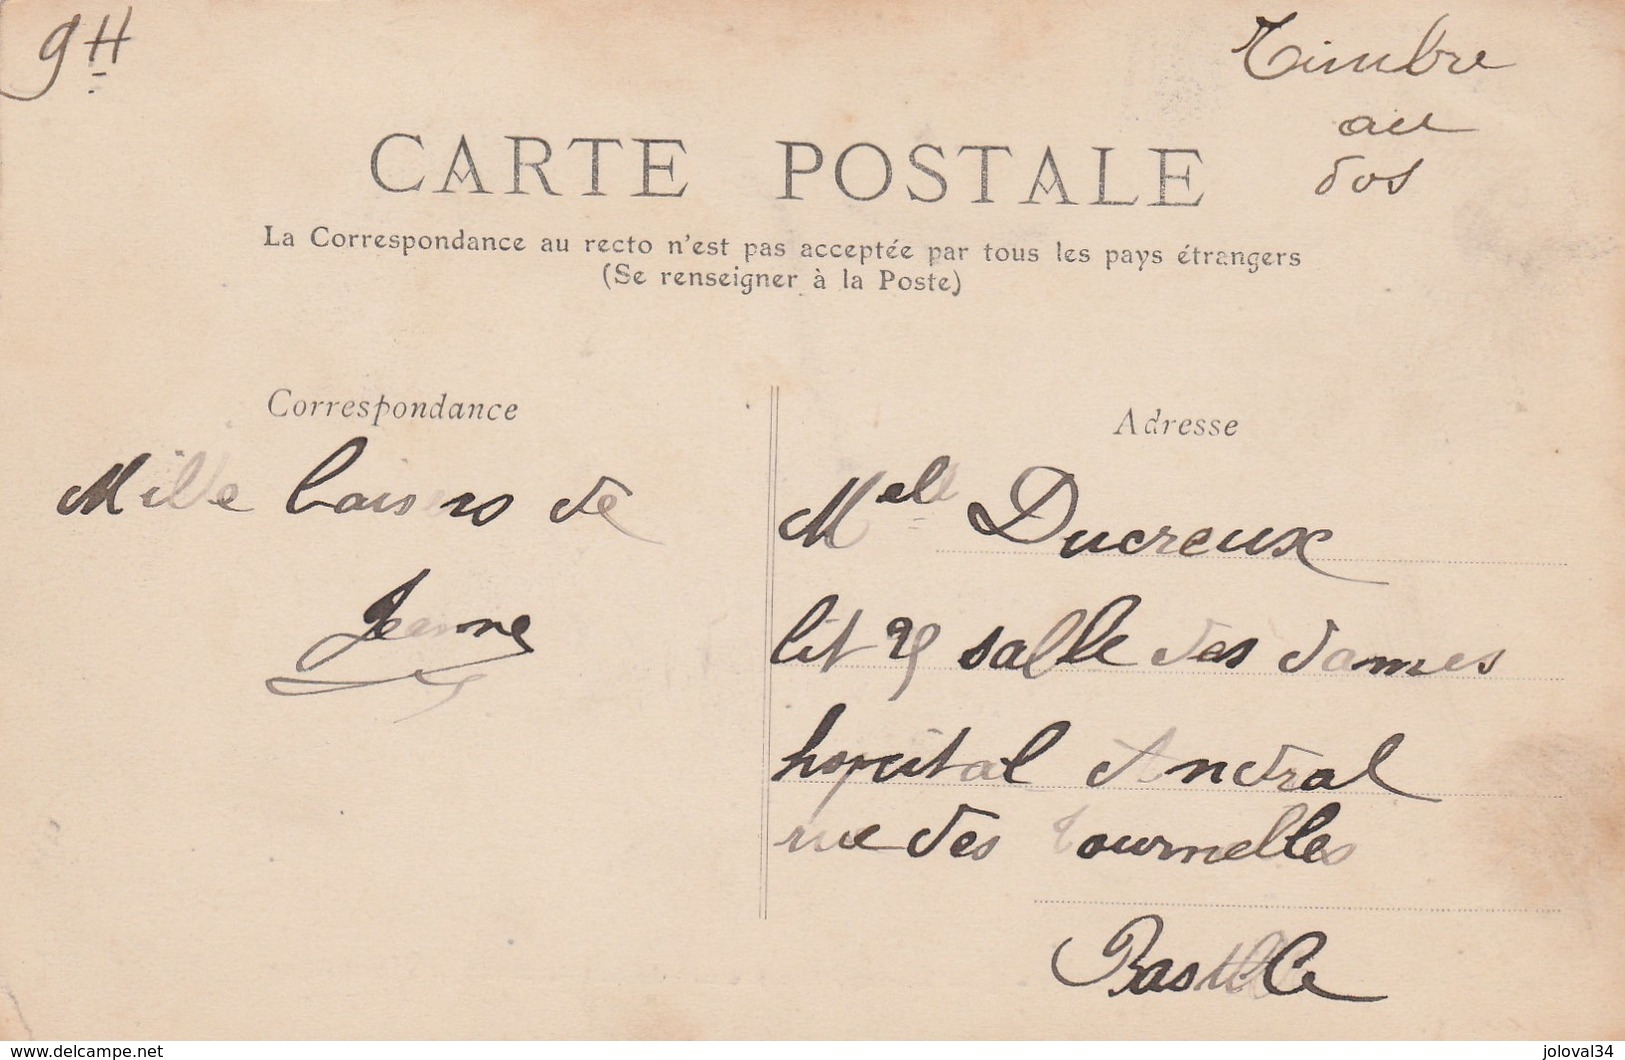 9H
Timbre
au
dos
CARTE POSTALE
La Correspondance au recto n'est pas acceptée par tous les pays étrangers
(Se renseigner à la Poste)
Correspondance
Mille baisers de
Jeanne
Adresse
Melle Ducreux
lit 29 salle des dames
hopital Andral
rue des tournelles
Bastille
www.delcampe.net
joloval34